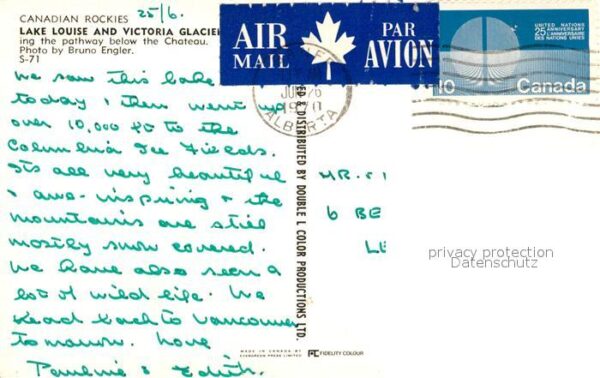 CANADIAN ROCKIES
25/6.
LAKE LOUISE AND VICTORIA GLACIE
ing the pathway below the Chateau.
Photo by Bruno Engler.
S-71
We saw this Lake
today & then went up
over 10,000 ft to the
Columbia Ice Fields.
Its all very beautiful
& awe-inspiring & the
mountains are still
mostly snow covered.
We have also seen a
lot of wild life. We
head back to Vancouver
tomorrow. Love
Pauline & Edith.
AIR MAIL
PAR AVION
UNITED NATIONS
25 ANNIVERSARY
L'ANNIVERSAIRE
DES NATIONS UNIES
10 Canada
1970
ALBERTA
& DISTRIBUTED BY DOUBLE L COLOR PRODUCTIONS LTD.
MR.
6 BE
LE
privacy protection
Datenschutz
MADE IN CANADA BY
EVERGREEN PRESS LIMITED
FC FIDELITY COLOUR